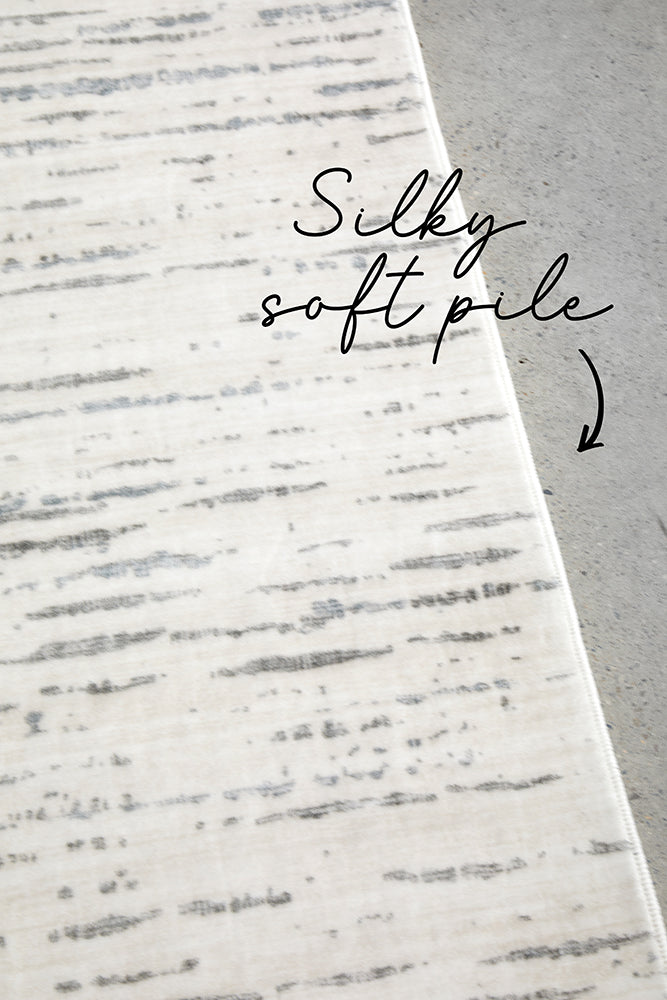 Silky
soft pile